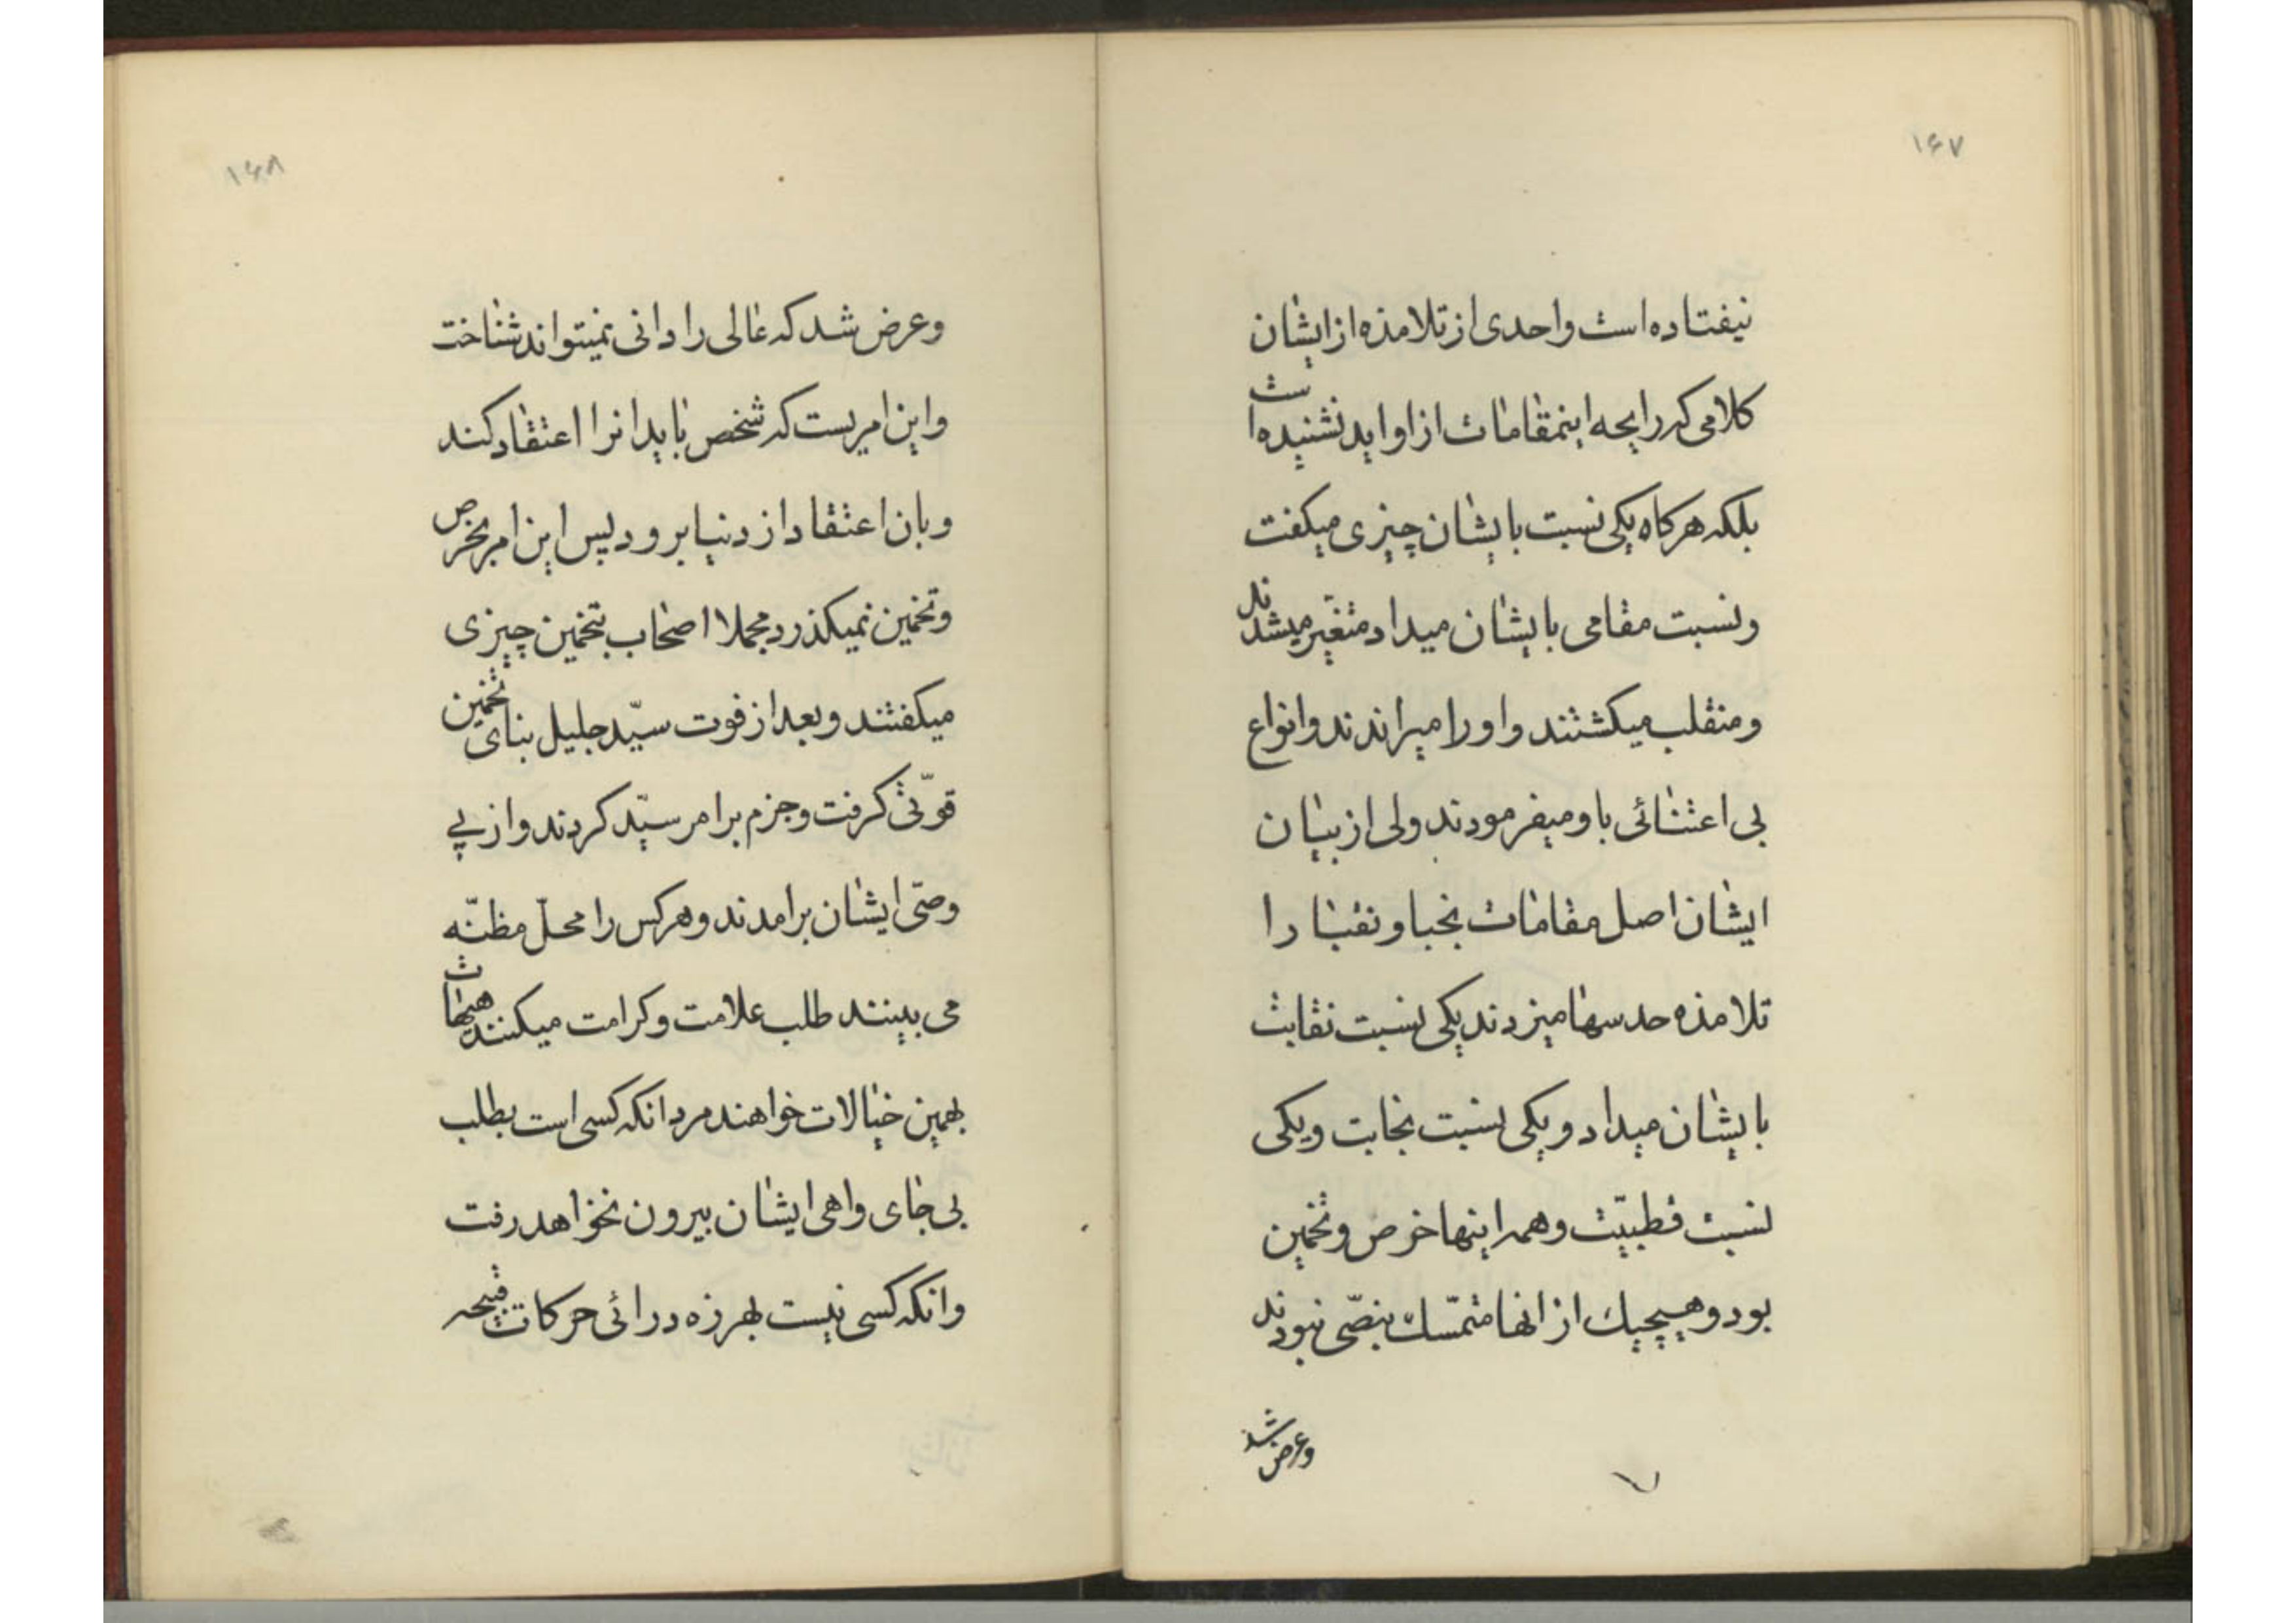 ۱۶۷
نیفتاده است واحدی از تلامذه از ایشان
کلامی که رایحه اینمقامات از او اید نشنیده است
بلکه هرکاه یکی نسبت بایشان چیزی میکفت
ونسبت مقامی بایشان میداد متغیر میشدند
ومنقلب میکشتند واورا میراندند وانواع
بی اعتنائی باو میفرمودند ولی از بیان
ایشان اصل مقامات نجبا ونقبا را
تلامذه حدسها میزدند یکی نسبت نقابت
بایشان میداد ویکی نسبت نجابت ویکی
نسبت قطبیّت وهمه اینها خرص وتخمین
بود وهیچیك از انها متمّسك بنصّی نبودند
وعرض شد
۱۶۸
وعرض شد که عالی را دانی نمیتواند شناخت
واین امریست که شخص باید انرا اعتقاد کند
وبان اعتقاد از دنیا برود لپس این امر بخرص
وتخمین نمیکذرد مجملا اصحاب بتخمین چیزی
میکفتند وبعد از فوت سیّد جلیل بنای تخمین
قوّتی کرفت وجزم بر امر سیّد کردند واز پی
وصیّ ایشان برامدند وهرکس را محلّ مظنّه
می بینند طلب علامت وکرامت میکنند هیهات
بهمین خیالات خواهند مرد انکه کسی است بطلب
بی جای واهی ایشان بیرون نخواهد رفت
وانکه کسی نیست بهرزه درائی حرکات قبیحه